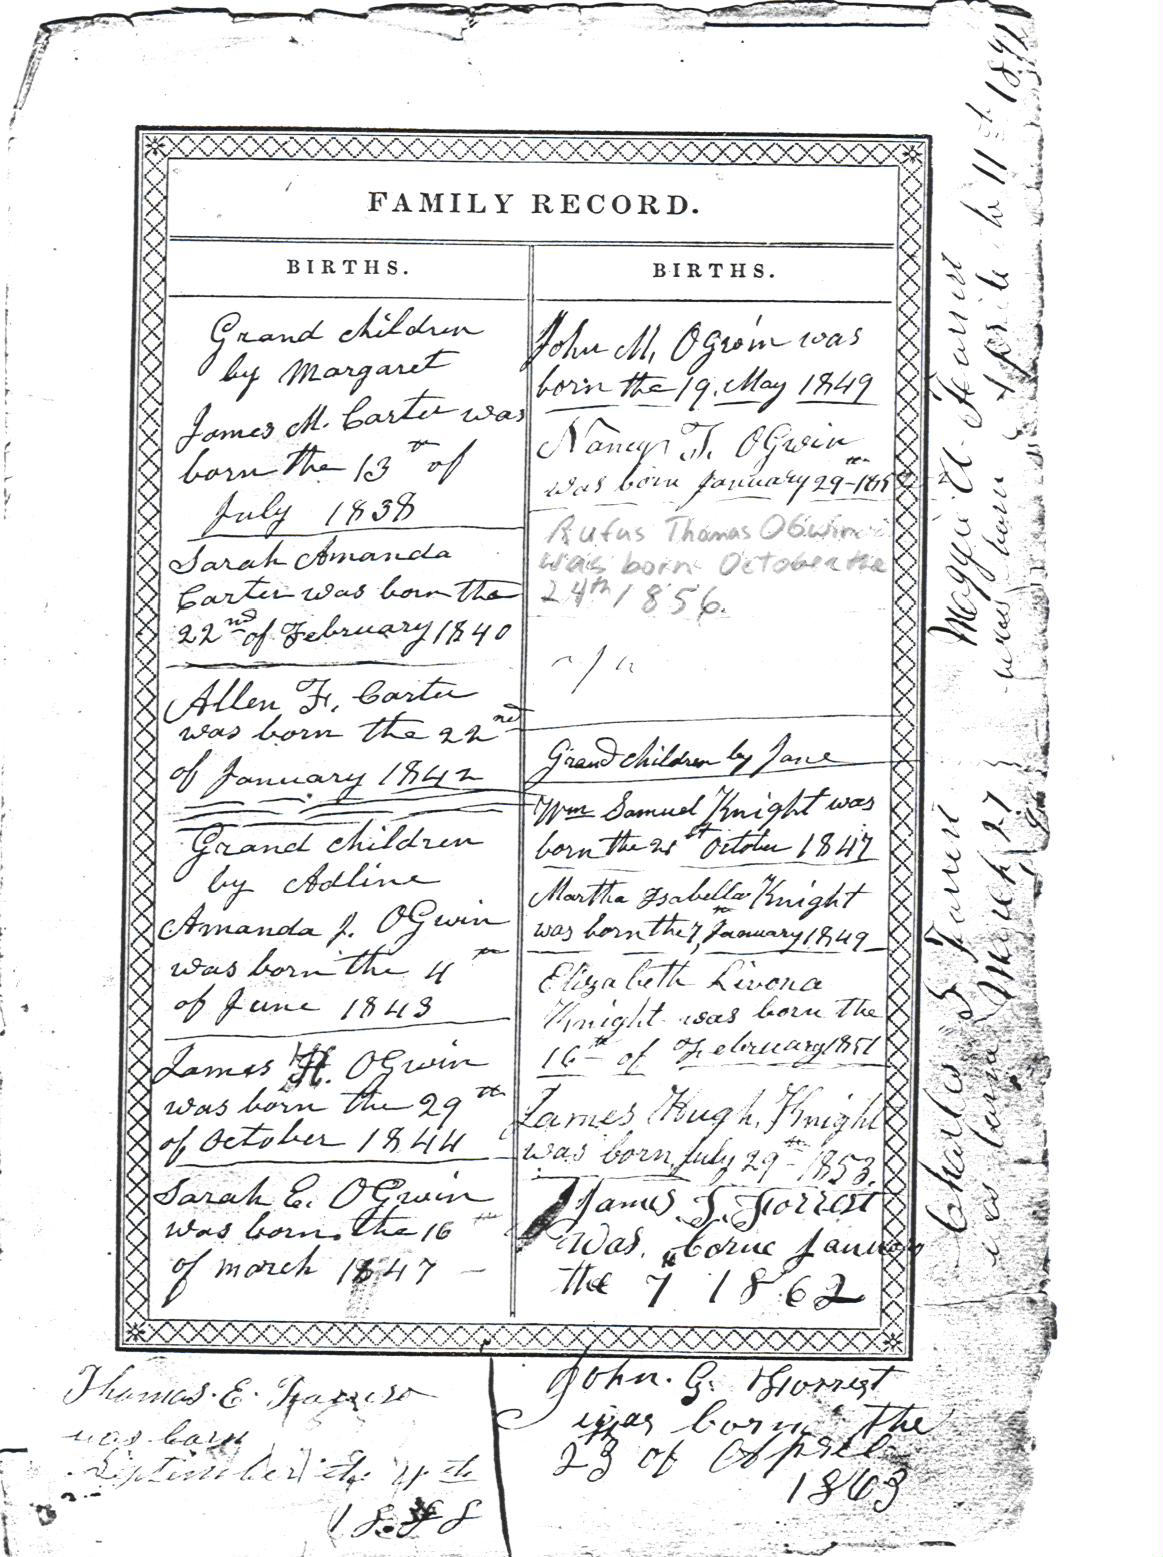 FAMILY RECORD.
BIRTHS.
Grand children
by Margaret
James M. Carter was
born the 13th of
July 1838
Sarah Amanda
Carter was born the
22nd of February 1840
Allen F. Carter
was born the 22nd
of January 1842
Grand children
by Adline
Amanda J. OGwin
was born the 4th
of June 1843
James H. OGwin
was born the 29th
of October 1844
Sarah E. OGwin
was born the 16th
of march 1847
BIRTHS.
John M. OGwin was
born the 19. May 1849
Nancy T. OGwin
was born January 29th
Rufus Thomas OGwin
was born October the
24th 1856.
Grand children by Jane
Wm Samuel Knight was
born the 21st October 1847
Martha Isabella Knight
was born the 7th January 1849
Elizabeth Livona
Knight was born the
16th of February 1851
James Hugh Knight
was born July 29th 1853
James T. Forrest
was borne January
the 7th 1862
Thomas E.
was born
September the 4th
John G. Forrest
was born the
23 of Apriel
1863
Maggie A.
was born the 11th
Charles
was borne March 27